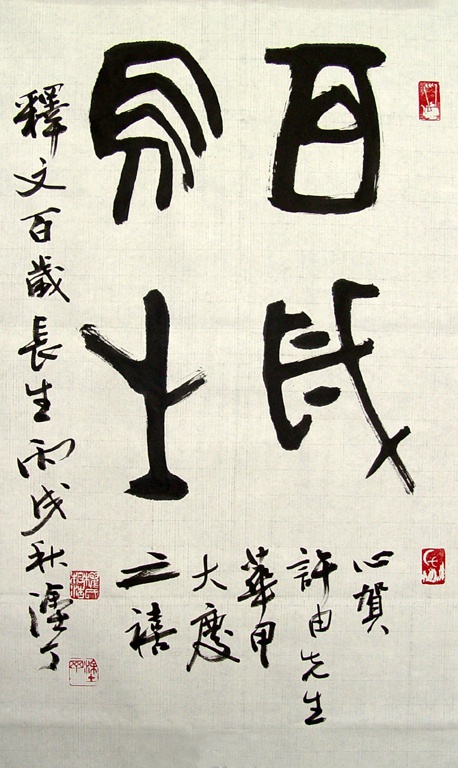 百歲
長生
心賀
許由先生
華甲
大慶
之禧
釋文百歲長生丙戌秋